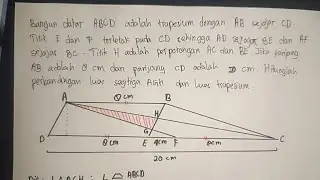 Bangun datar ABCD adalah trapesium dengan AB sejajar CD
Titik E dan F terletak pada CD sehingga AD sejajar BE dan AF
sejajar BC. Titik H adalah perpotongan AC dan BE. Jika panjang
AB adalah 8 cm dan panjang CD adalah cm. Hitunglah
perbandingan luas segitiga AGH dan luas trapesium.
A 8 cm B
H
G
D 8 cm E 4cm F 8 cm C
20 cm
ABCD